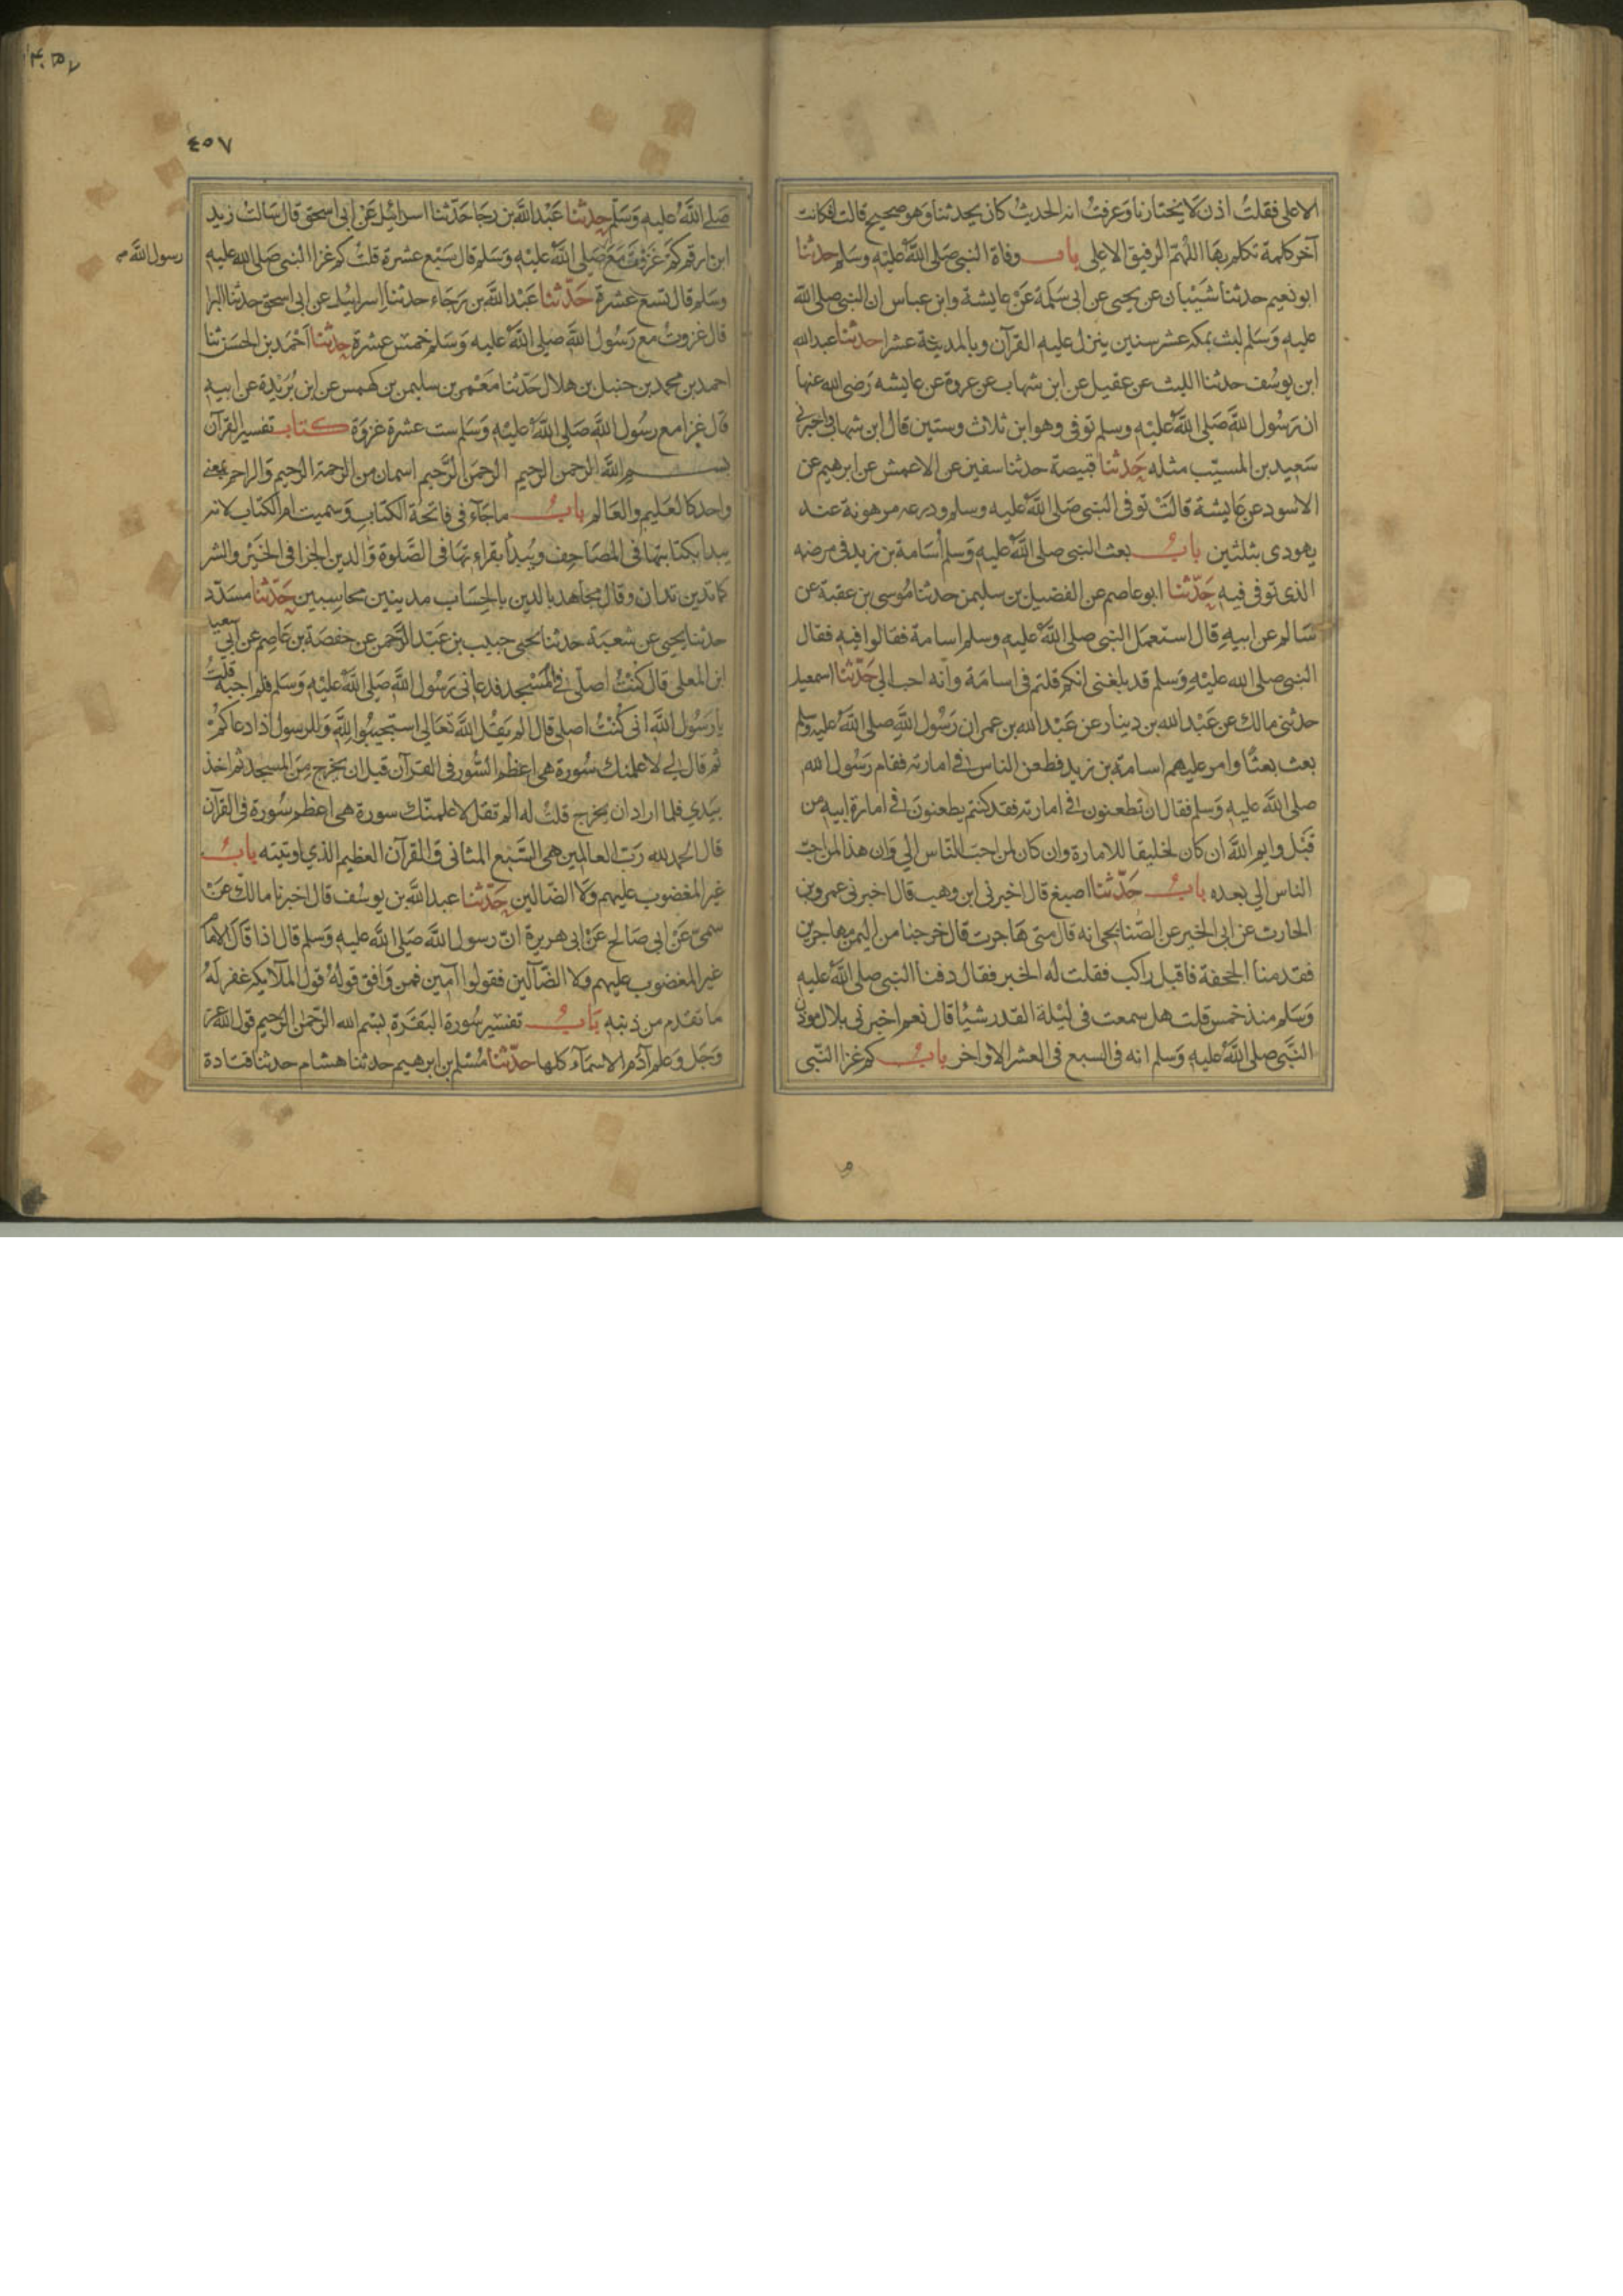 الاعلى فقلت اذن لا يختارنا وعرفت انه الحديث كان يحدثنا وهو صحيح قالت فكانت
آخر كلمة تكلم بها اللهم الرفيق الاعلى باب وفاة النبي صلى الله عليه وسلم حدثنا
ابو نعيم حدثنا شيبان عن يحيى عن ابي سلمة عن عايشة وابن عباس ان النبي صلى الله
عليه وسلم لبث بمكة عشر سنين ينزل عليه القرآن وبالمدينة عشرا حدثنا عبد الله
ابن يوسف حدثنا الليث عن عقيل عن ابن شهاب عن عروة عن عايشه رضى الله عنها
ان رسول الله صلى الله عليه وسلم توفى وهو ابن ثلاث وستين قال ابن شهاب واخبرني
سعيد بن المسيب مثله حدثنا قبيصة حدثنا سفين عن الاعمش عن ابرهيم عن
الاسود عن عايشة قالت توفى النبي صلى الله عليه وسلم ودرعه مرهونة عند
يهودى بثلثين باب بعث النبي صلى الله عليه وسلم أسامة بن زيد فى مرضه
الذى توفى فيه حدثنا ابو عاصم عن الفضيل بن سليمن حدثنا موسى بن عقبة عن
سالم عن ابيه قال استعمل النبي صلى الله عليه وسلم اسامة فقالوا فيه فقال
النبي صلى الله عليه وسلم قد بلغنى انكم قلتم فى اسامة وانه احب الي حدثنا اسمعيل
حدثنى مالك عن عبد الله بن دينار عن عبد الله بن عمر ان رسول الله صلى الله عليه وسلم
بعث بعثا وامر عليهم اسامة بن زيد فطعن الناس في امارته فقام رسول الله
صلى الله عليه وسلم فقال ان تطعنون في امارته فقد كنتم يطعنون في امارة ابيه من
قبل وايم الله ان كان لخليقا للامارة وان كان لمن احب الناس الي وان هذا لمن احب
الناس الي بعده باب حدثنا اصبغ قال اخبرنى ابن وهب قال اخبرنى عمرو بن
الحارث عن ابى الخير عن الصنابحى انه قال متى هاجرت قال خرجنا من اليمن مهاجرين
فقدمنا الجحفة فاقبل راكب فقلت له الخبر فقال دفنا النبي صلى الله عليه
وسلم منذ خمس قلت هل سمعت فى ليلة القدر شيًا قال نعم اخبرنى بلال موذن
النبي صلى الله عليه وسلم انه فى السبع فى العشر الاواخر باب كم غزا النبي
٤٥٧
صلى الله عليه وسلم حدثنا عبد الله بن رجا حدثنا اسرائيل عن ابى اسحق قال سالت زيد
ابن ارقم كم غزوت مع صلى الله عليه وسلم قال سبع عشرة قلت كم غزا النبي صلى الله عليه
رسول الله صح
وسلم قال تسع عشرة حدثنا عبد الله بن رجاء حدثنا اسراييل عن ابى اسحق حدثنا البرا
قال غزوت مع رسول الله صلى الله عليه وسلم خمس عشرة حدثنا احمد بن الحسن ثنا
احمد بن محمد بن حنبل بن هلال حدثنا معتمر بن سليمن بن كهمس عن ابن بريدة عن ابيه
قال غزا مع رسول الله صلى الله عليه وسلم ست عشرة غزوة كتاب تفسير القرآن
بسم الله الرحمن الرحيم الرحمن الرحيم اسمان من الرحمة الرحيم والراحم بمعنى
واحد كالعليم والعالم باب ما جاء فى فاتحة الكتاب وسميت ام الكتاب لانه
يبدا بكتابتها فى المصاحف ويبدأ بقراءتها فى الصلوة والدين الجزا فى الخير والشر
كما تدين تدان وقال مجاهد بالدين بالحساب مدينين محاسبين حدثنا مسدد
حدثنا يحيى عن شعبة حدثنا يحيى حبيب بن عبد الرحمن عن حفصة بن عاصم عن ابي سعيد
ابن المعلى قال كنت اصلى في المسجد فدعانى رسول الله صلى الله عليه وسلم فلم اجبه قلت
يا رسول الله انى كنت اصلى قال الم يقل الله تعالى استجيبوا لله وللرسول اذا دعاكم
ثم قال لي لاعلمنك سورة هى اعظم السور فى القرآن قبل ان يخرج من المسجد ثم اخذ
بيدي فلما اراد ان يخرج قلت له الم تقل لاعلمنك سورة هى اعظم سورة فى القرآن
قال الحمد لله رب العالمين هى السبع المثانى والقرآن العظيم الذي اوتيته باب
غير المغضوب عليهم ولا الضالين حدثنا عبد الله بن يوسف قال اخبرنا مالك عن
سمى عن ابى صالح عن ابى هريرة ان رسول الله صلى الله عليه وسلم قال اذا قال الامام
غير المغضوب عليهم ولا الضآلين فقولوا آمين فمن وافق قوله قول الملآيكه غفر له
ما تقدم من ذنبه باب تفسير سورة البقرة بسم الله الرحمن الرحيم قول الله عز
وجل وعلم آدم الاسماء كلها حدثنا مسلم بن ابرهيم حدثنا هشام حدثنا قتادة